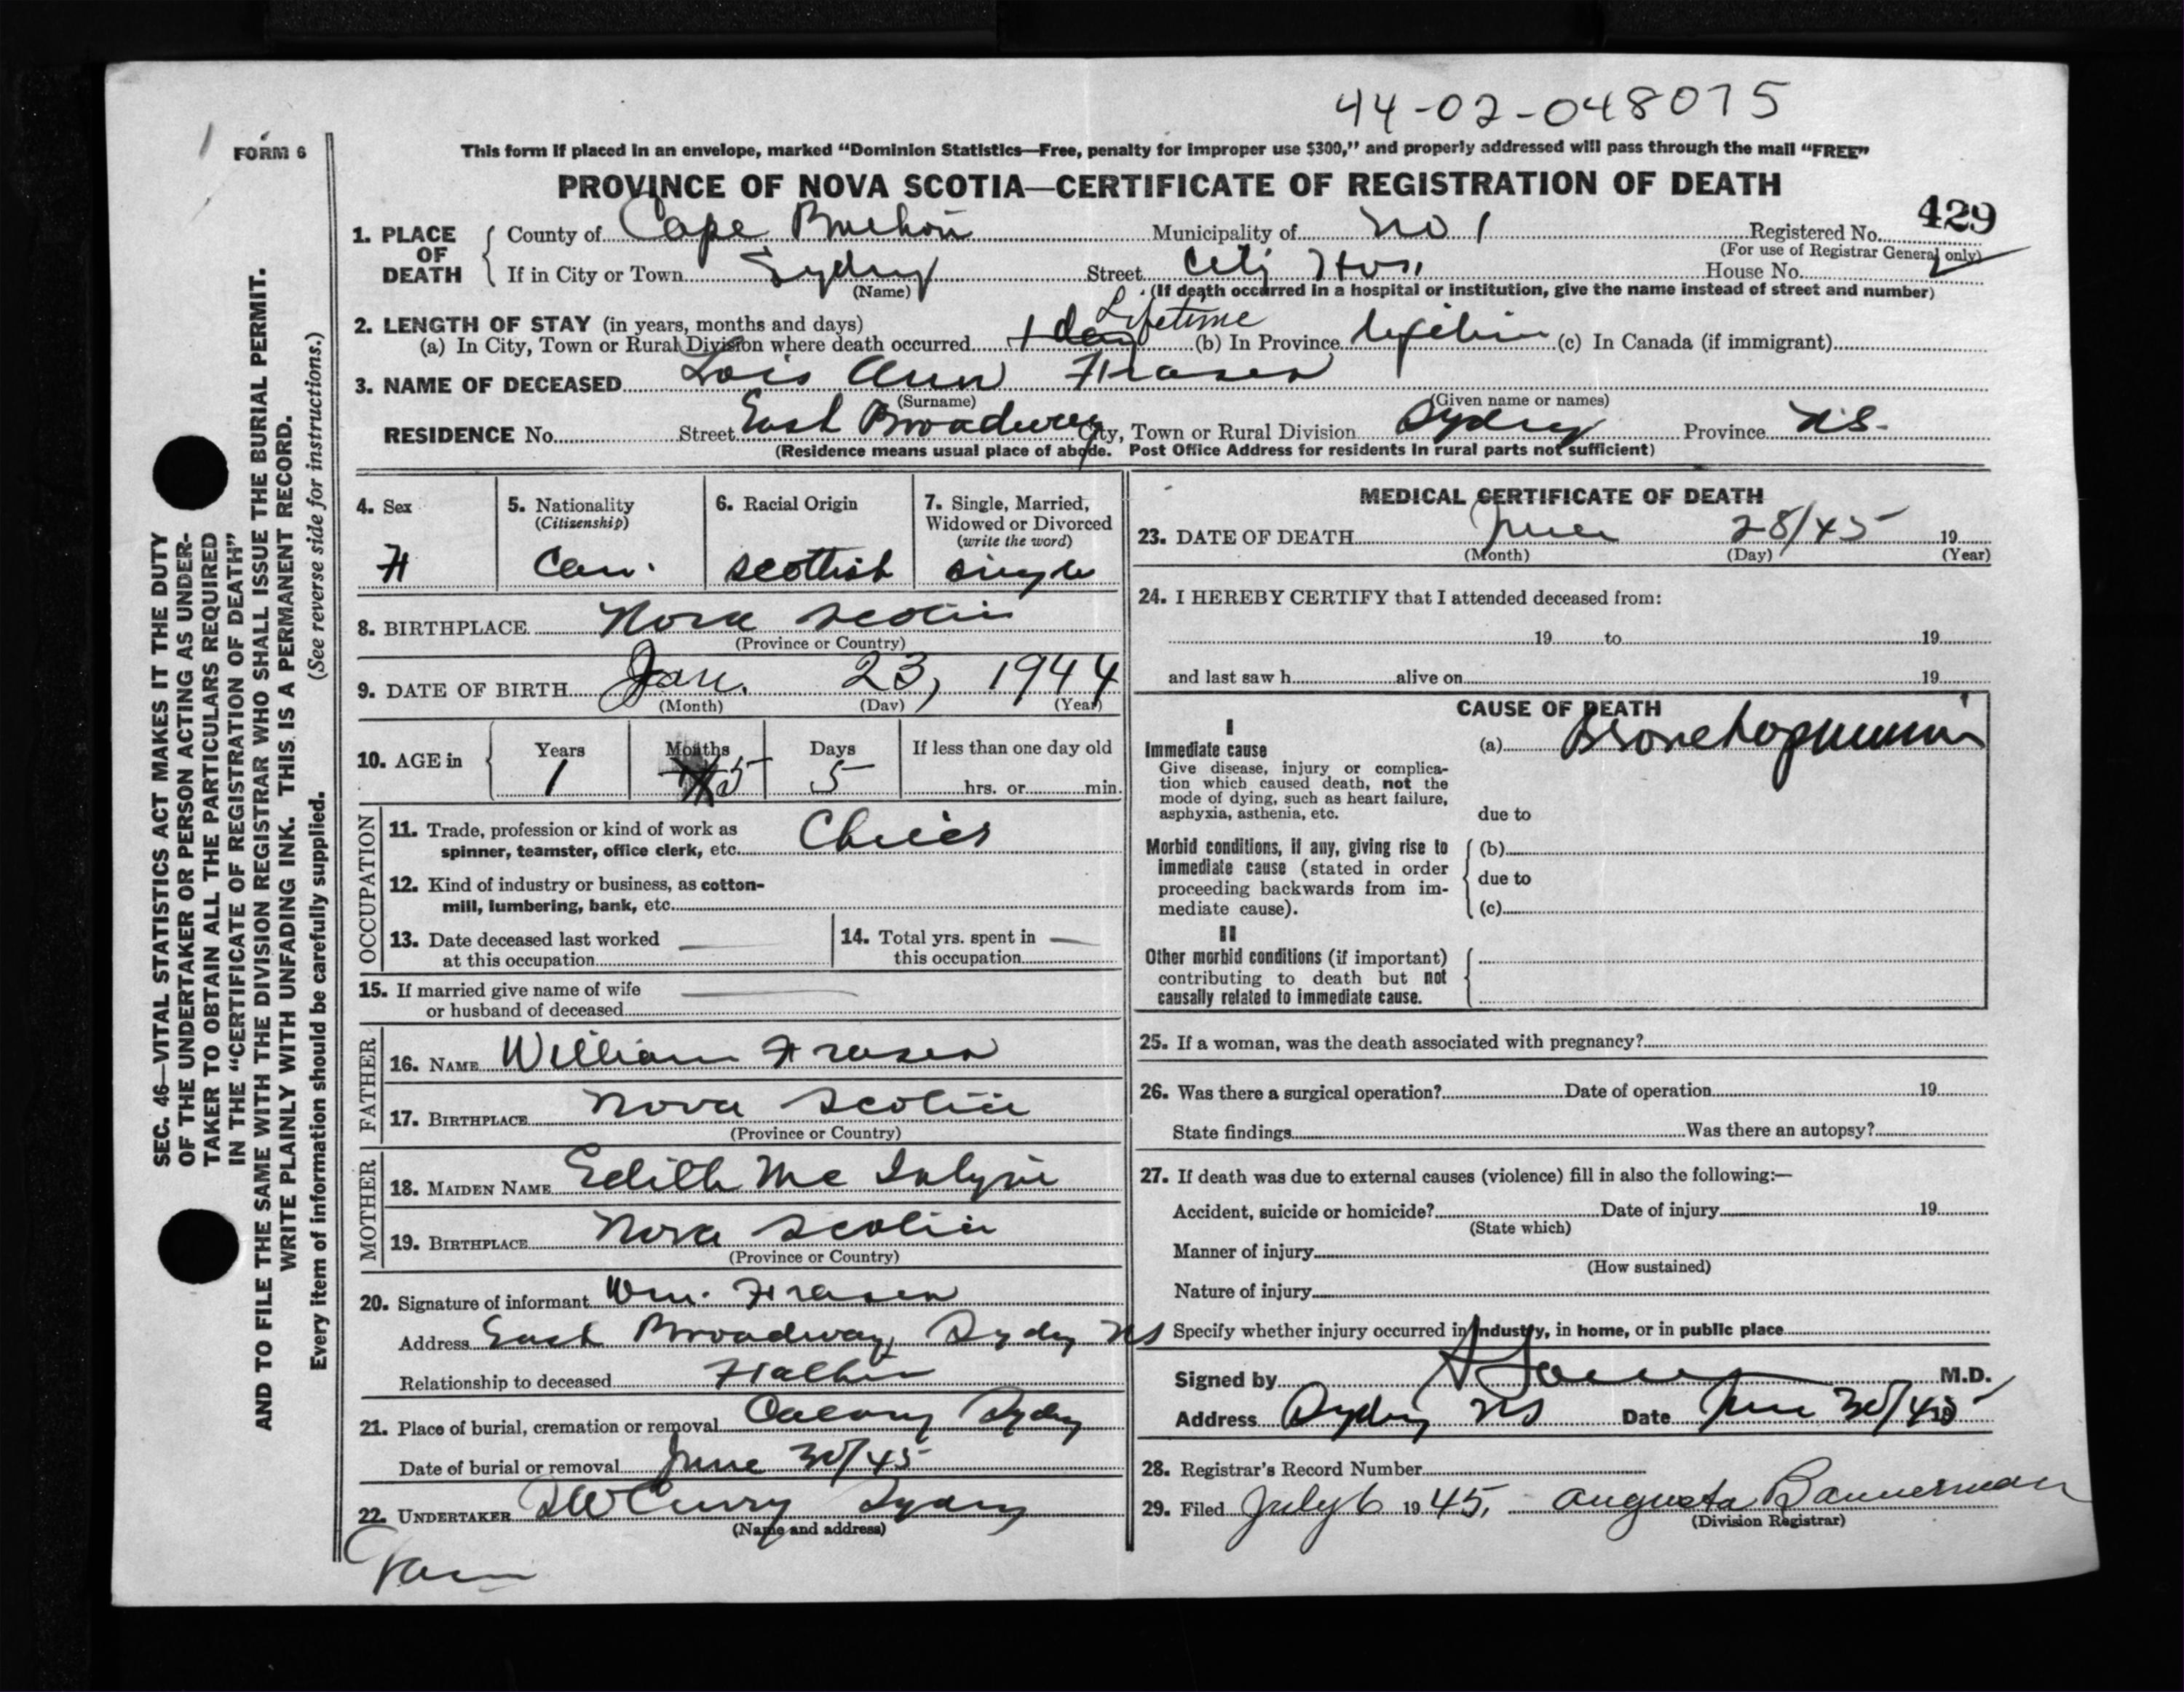 44-02-048075
FORM 6
This form if placed in an envelope, marked "Dominion Statistics—Free, penalty for improper use $300," and properly addressed will pass through the mail "FREE"
PROVINCE OF NOVA SCOTIA—CERTIFICATE OF REGISTRATION OF DEATH
429
1. PLACE OF DEATH
County of Cape Breton Municipality of No 1 Registered No.
(For use of Registrar General only)
If in City or Town Sydney Street City Hos. House No.
(Name) (If death occurred in a hospital or institution, give the name instead of street and number)
2. LENGTH OF STAY (in years, months and days) Lifetime
(a) In City, Town or Rural Division where death occurred 1 day (b) In Province lifetime (c) In Canada (if immigrant)
3. NAME OF DECEASED Lois Ann Fraser
(Surname) (Given name or names)
RESIDENCE No. Street East Broadway City, Town or Rural Division Sydney Province N.S.
(Residence means usual place of abode. Post Office Address for residents in rural parts not sufficient)
4. Sex F
5. Nationality (Citizenship) Can.
6. Racial Origin Scottish
7. Single, Married, Widowed or Divorced (write the word) single
8. BIRTHPLACE Nova Scotia
(Province or Country)
9. DATE OF BIRTH Jan. 23, 1944
(Month) (Day) (Year)
10. AGE in Years 1 Months 5 Days 5 If less than one day old
hrs. or min.
OCCUPATION
11. Trade, profession or kind of work as
spinner, teamster, office clerk, etc.
12. Kind of industry or business, as cotton-
mill, lumbering, bank, etc.
13. Date deceased last worked
at this occupation
14. Total yrs. spent in
this occupation
15. If married give name of wife
or husband of deceased
FATHER
16. NAME William Fraser
17. BIRTHPLACE Nova Scotia
(Province or Country)
MOTHER
18. MAIDEN NAME Edith Mc Intyre
19. BIRTHPLACE Nova Scotia
(Province or Country)
20. Signature of informant Wm. Fraser
Address East Broadway, Sydney NS
Relationship to deceased Father
21. Place of burial, cremation or removal Calvary Sydney
Date of burial or removal June 30/45
22. UNDERTAKER Curry Sydney
(Name and address)
MEDICAL CERTIFICATE OF DEATH
23. DATE OF DEATH June 28/45 19
(Month) (Day) (Year)
24. I HEREBY CERTIFY that I attended deceased from:
19 to 19
and last saw h alive on 19
CAUSE OF DEATH
I
Immediate cause (a) Bronchopneumonia
Give disease, injury or complica-
tion which caused death, not the
mode of dying, such as heart failure,
asphyxia, asthenia, etc. due to
Morbid conditions, if any, giving rise to (b)
immediate cause (stated in order due to
proceeding backwards from im-
mediate cause). (c)
II
Other morbid conditions (if important)
contributing to death but not
causally related to immediate cause.
25. If a woman, was the death associated with pregnancy?
26. Was there a surgical operation? Date of operation 19
State findings Was there an autopsy?
27. If death was due to external causes (violence) fill in also the following:—
Accident, suicide or homicide? Date of injury 19
(State which)
Manner of injury
(How sustained)
Nature of injury
Specify whether injury occurred in industry, in home, or in public place
Signed by M.D.
Address Sydney NS Date June 30/45 19
28. Registrar's Record Number
29. Filed July 6 1945, Augusta Bannerman
(Division Registrar)
SEC. 46—VITAL STATISTICS ACT MAKES IT THE DUTY
OF THE UNDERTAKER OR PERSON ACTING AS UNDER-
TAKER TO OBTAIN ALL THE PARTICULARS REQUIRED
IN THE "CERTIFICATE OF REGISTRATION OF DEATH"
AND TO FILE THE SAME WITH THE DIVISION REGISTRAR WHO SHALL ISSUE THE BURIAL PERMIT.
WRITE PLAINLY WITH UNFADING INK. THIS IS A PERMANENT RECORD.
Every item of information should be carefully supplied. (See reverse side for instructions.)